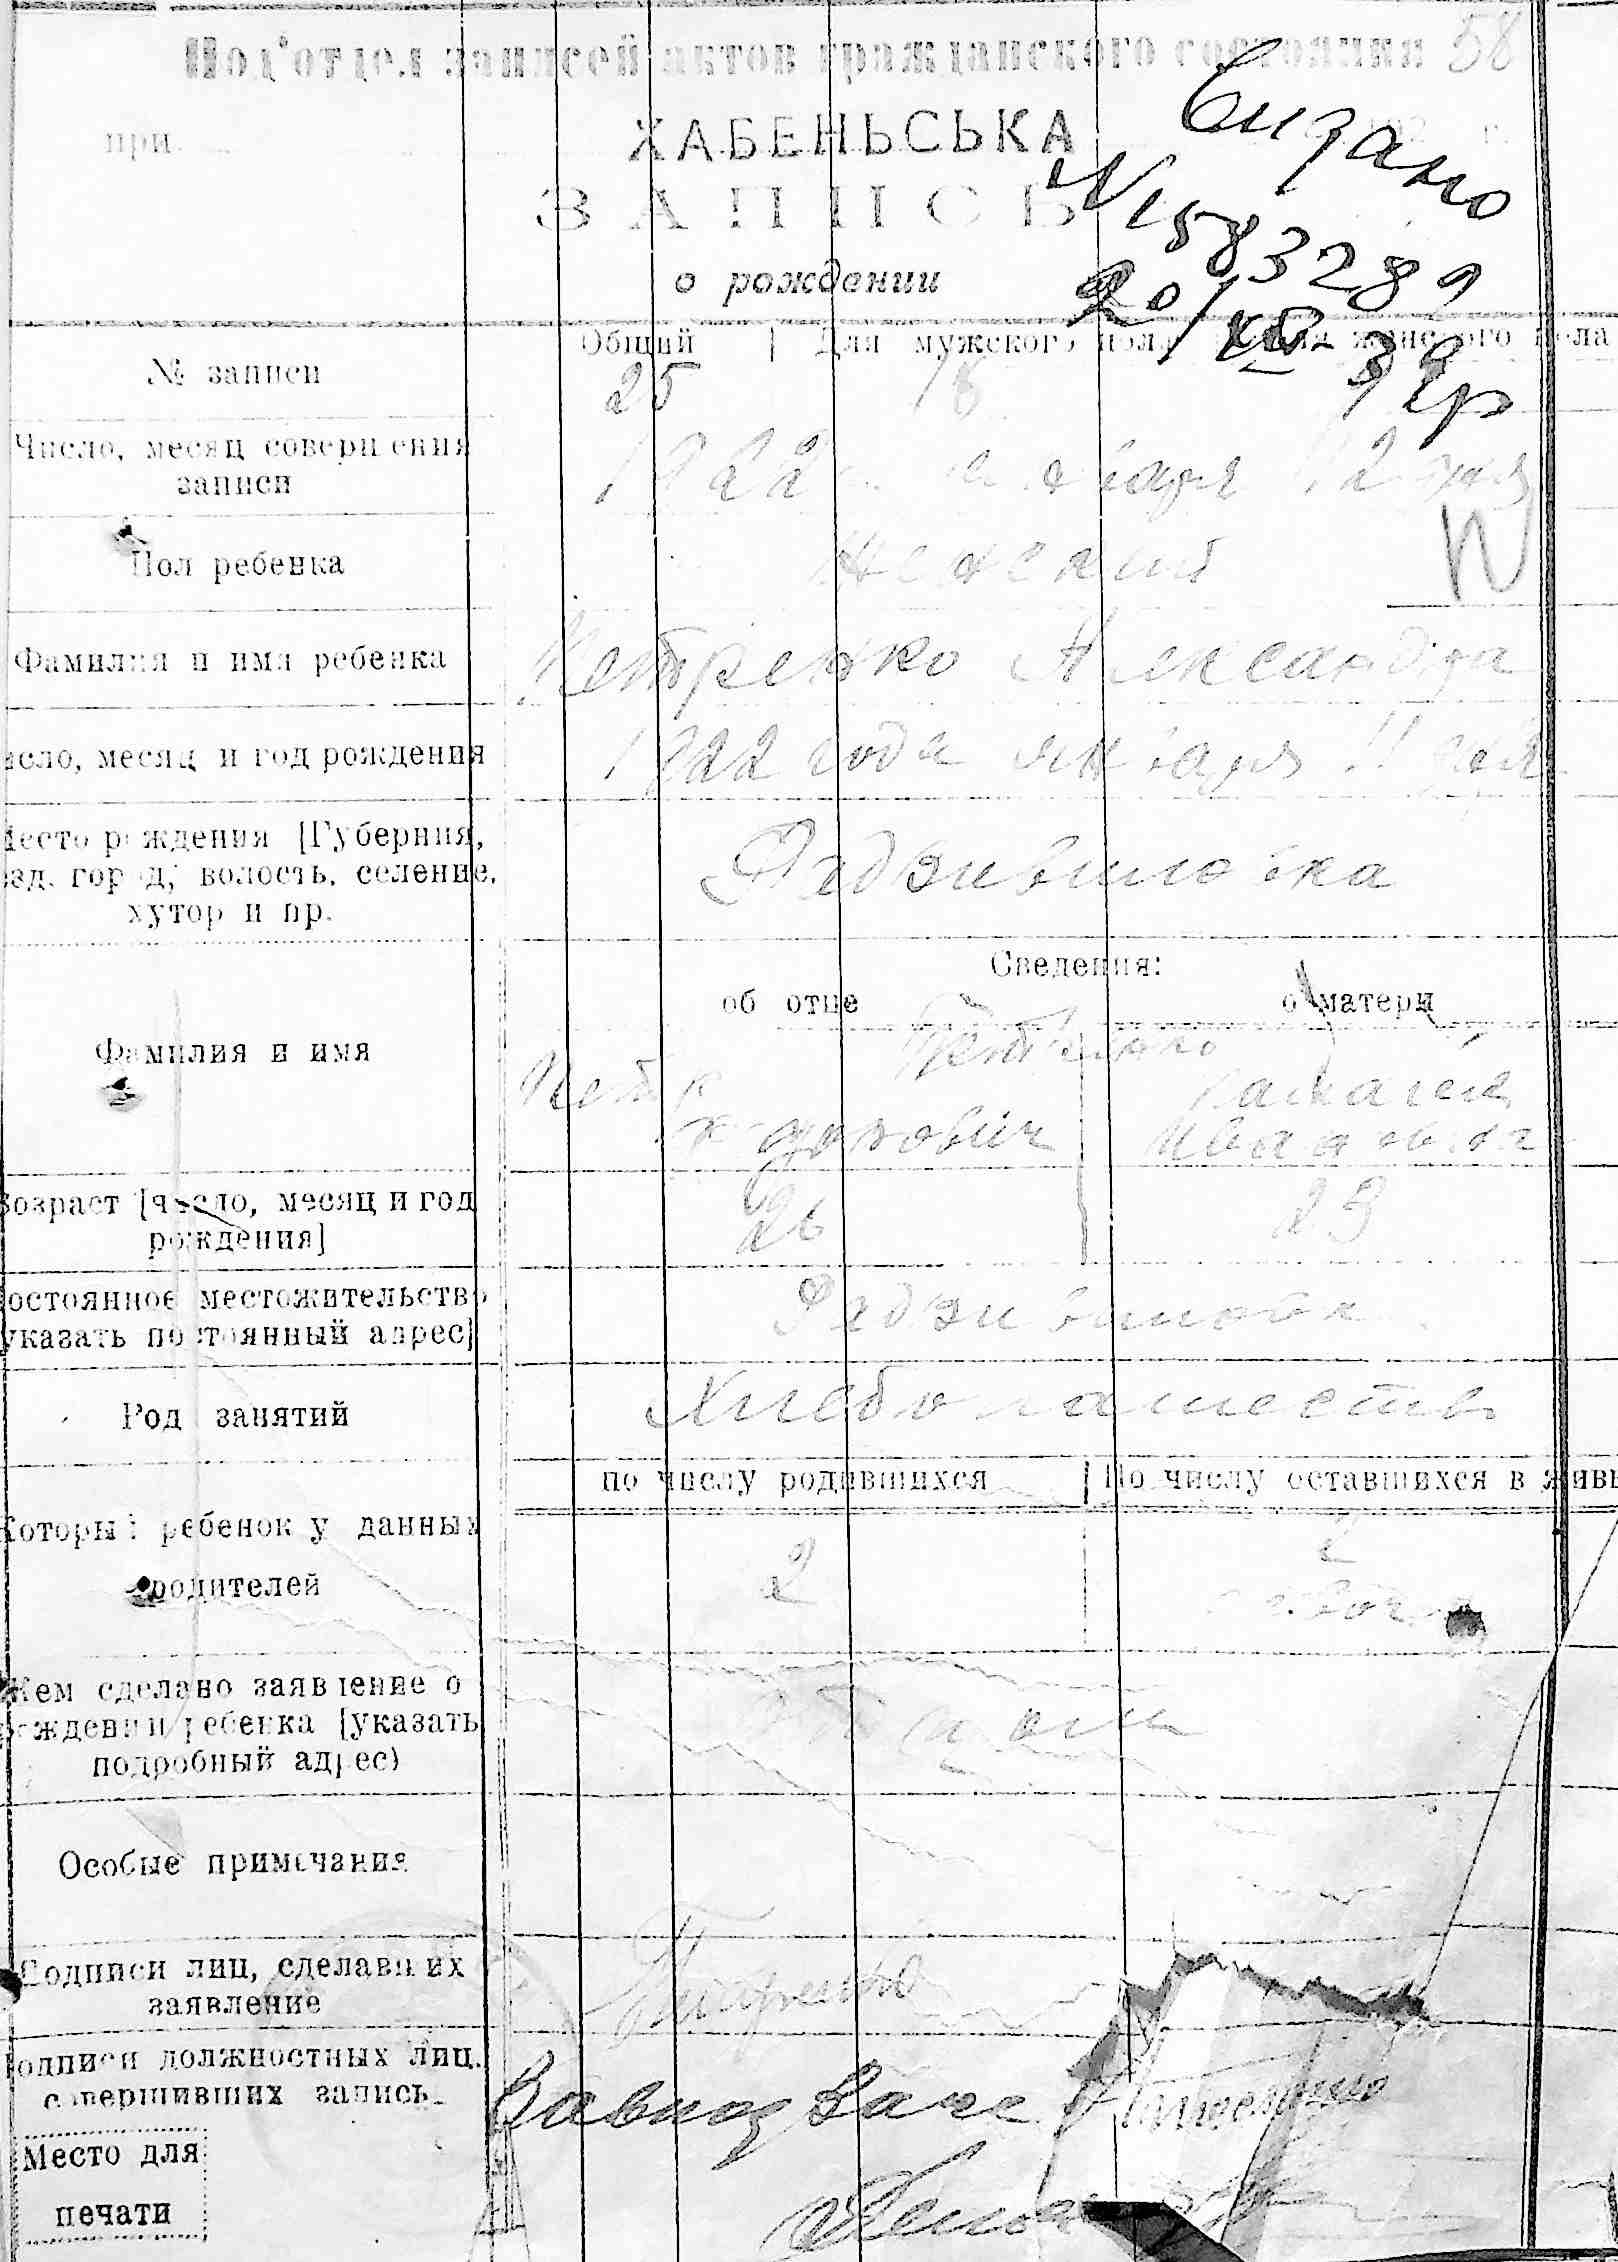 Под'отдел записей актов гражданского состояния 58
при
ХАБЕНЬСЬКА
Видано
ЗАПИСЬ
N 1583289
о рождении
20/XII 39 р
Общий | Для мужского пола | Для женского пола
№ записи 25
Число, месяц совершения 1922 января 12 дня
записи
Пол ребенка женский
Фамилия и имя ребенка Петренко Александра
Число, месяц и год рождения 1922 года января 11 дня
Место рождения [Губерния,
уезд, город, волость, селение, Радзивиловка
хутор и пр.
Сведения:
об отце о матери
Фамилия и имя Петренко
Ивановна
Возраст [число, месяц и год 26 23
рождения]
Постоянное местожительство Радзивиловка
[указать постоянный адрес]
Род занятий Хлебопашество
по числу родившихся | По числу оставшихся в живых
Который ребенок у данных 2 2
родителей
Кем сделано заявление о
рождении ребенка [указать
подробный адрес)
Особые примечания
Подписи лиц, сделавших Петренко
заявление
Подписи должностных лиц,
совершивших запись. Завпод Загс
Место для
печати